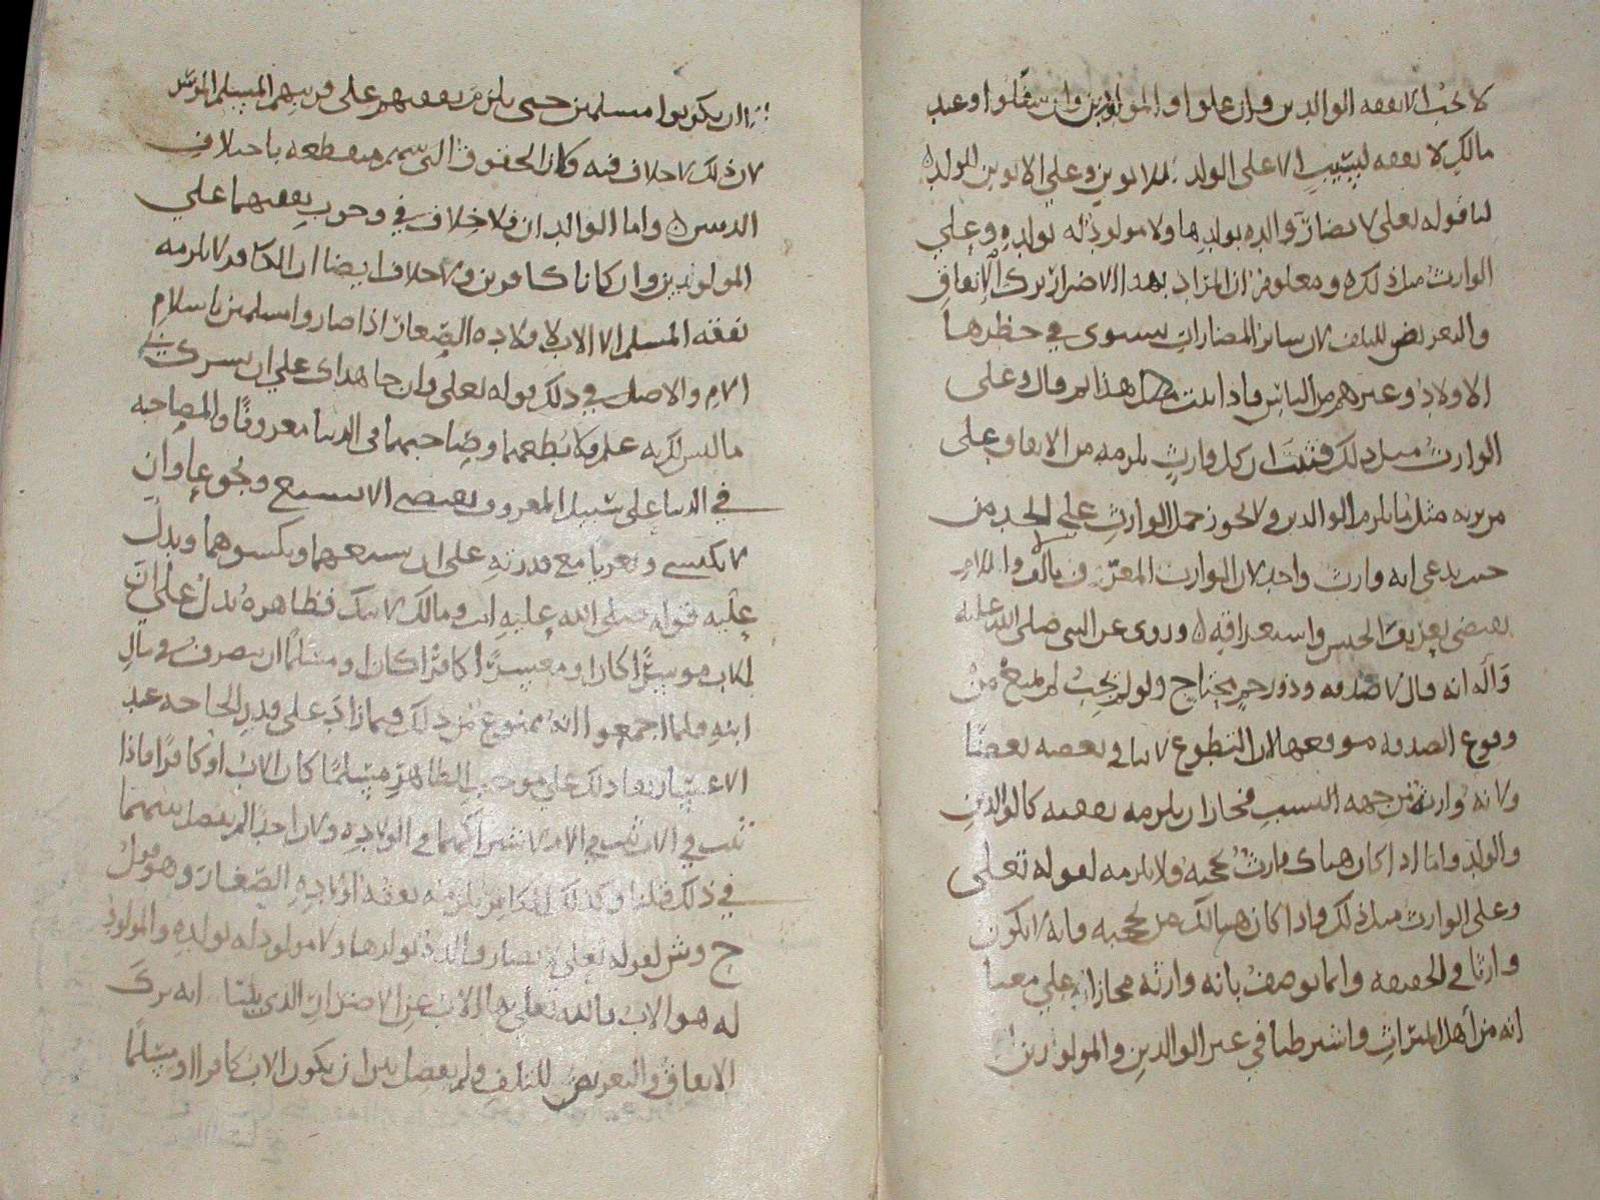 لا تجب الا نفقه الوالدين وان علوا والمولودين وان سفلوا وعند
مالك لا نفقه لنسيب الا على الولد للابوين وعلى الابوين للولد
لنا قوله تعلى لا تضار والده بولدها ولا مولود له بولده وعلى
الوارث مثل ذلك ومعلوم ان المراد بهذا الاضرار ترك الانفاق
والتعريض للتلف لان سائر المضارات يستوى في حظرها
الاولاد وغيرهم من الناس فاذا ثبت هذا ثم قال وعلى
الوارث مثل ذلك فثبت ان كل وارث يلزمه من الانفاق على
من يرثه مثل ما يلزم الوالدين ولا يجوز حمل الوارث على الجد من
حيث يدعى انه وارث واحد لان الوارث المعرف بالالف واللام
يقتضى تعريف الجنس واستغراقه وروى عن النبى صلى الله عليه
وآله انه قال لا صدقه وذو رحم محتاج ولو لم تجب لم يمنع من
وقوع الصدقه موقعها لان التطوع لا ينافي بعضه بعضا
ولانه وارث من جهه النسب فجاز ان يلزمه نفقته كالوالدين
والولد واما اذا كان هناك وارث يحجبه فلا يلزمه لقوله تعلى
وعلى الوارث مثل ذلك فاذا كان هنالك من يحجبه فانه لا يكون
وارثا في الحقيقه وانما يوصف بانه وارثه مجازا على معنا
انه من اهل الميراث واشترطنا في غير الوالدين والمولودين
ان يكونوا مسلمين حتى يلزم نفقتهم على قريبهم المسلم الموسر
لان ذلك لا خلاف فيه وكان الحقوق التى بينهم منقطعه باختلاف
الدينين واما الوالدان فلا خلاف في وجوب نفقتهما على
المولودين وان كانا كافرين ولا خلاف ايضا ان الكافر لا يلزمه
نفقه المسلم الا الاب لاولاده الصغار اذا صاروا مسلمين باسلام
الام والاصل في ذلك قوله تعلى وان جاهداك على ان تشرك بي
ما ليس لك به علم فلا تطعهما وصاحبهما في الدنيا معروفا والمصاحبه
في الدنيا على سبيل المعروف يقتضى الا يشبع ويجوعا وان
لا يكتسي ويعريا مع قدرته على ان يشبعهما ويكسوهما ويدل
عليه قوله صلى الله عليه انت ومالك لابيك فظاهره يدل على ان
للاب موسرا كان او معسرا كافرا كان او مسلما ان يتصرف في مال
ابنه فلما اجمعوا انه ممنوع من ذلك فيما زاد على قدر الحاجه عند
الاعسار بقا ذلك على موجب الظاهر مسلما كان الاب او كافرا فاذا
ثبت في الاب ثبت في الام لاشتراكهما في الولاده ولان احدا لم يفصل بينهما
في ذلك قلنا وكذلك الكافر يلزمه نفقه اولاده الصغار وهو قول
ح وش لقوله تعلى لا تضار والدة بولدها ولا مولود له بولده والمولود
له هو الاب فالله تعلى نها الاب عن الاضرار الذى بينا انه ترك
الانفاق والتعريض للتلف ولم يفصل بين ان يكون الاب كافرا او مسلما